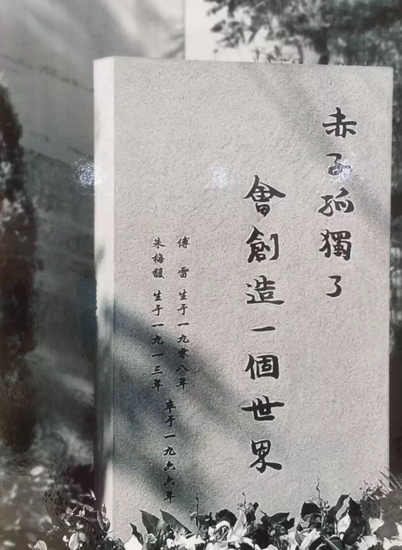 赤子孤獨了
會創造一個世界
傅雷 生于一九零八年
朱梅馥 生于一九一三年
卒于一九六六年